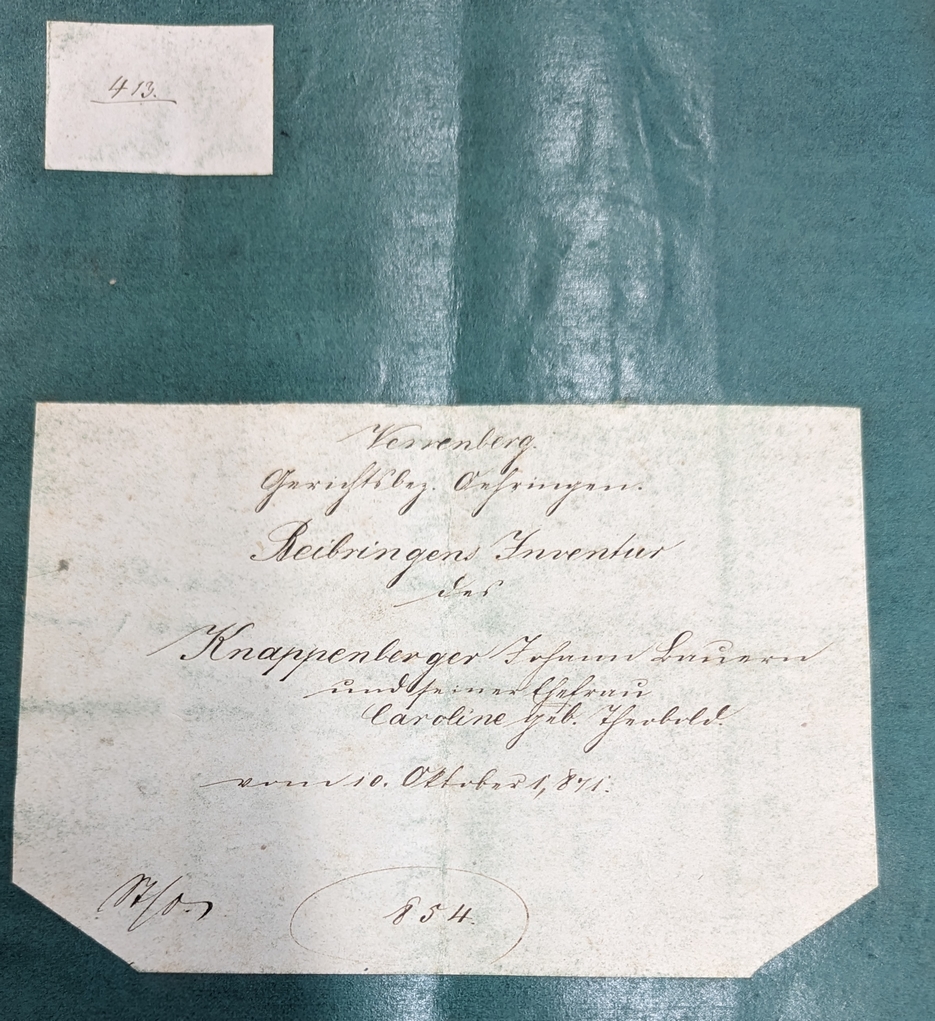 413.
Verrenberg.
Gerichtsbez. Oehringen.
Beibringens Inventur
des
Knappenberger Johann Bauern
und seiner Ehefrau
Caroline geb. Theobold.
vom 10. Oktober 1,871.
854.